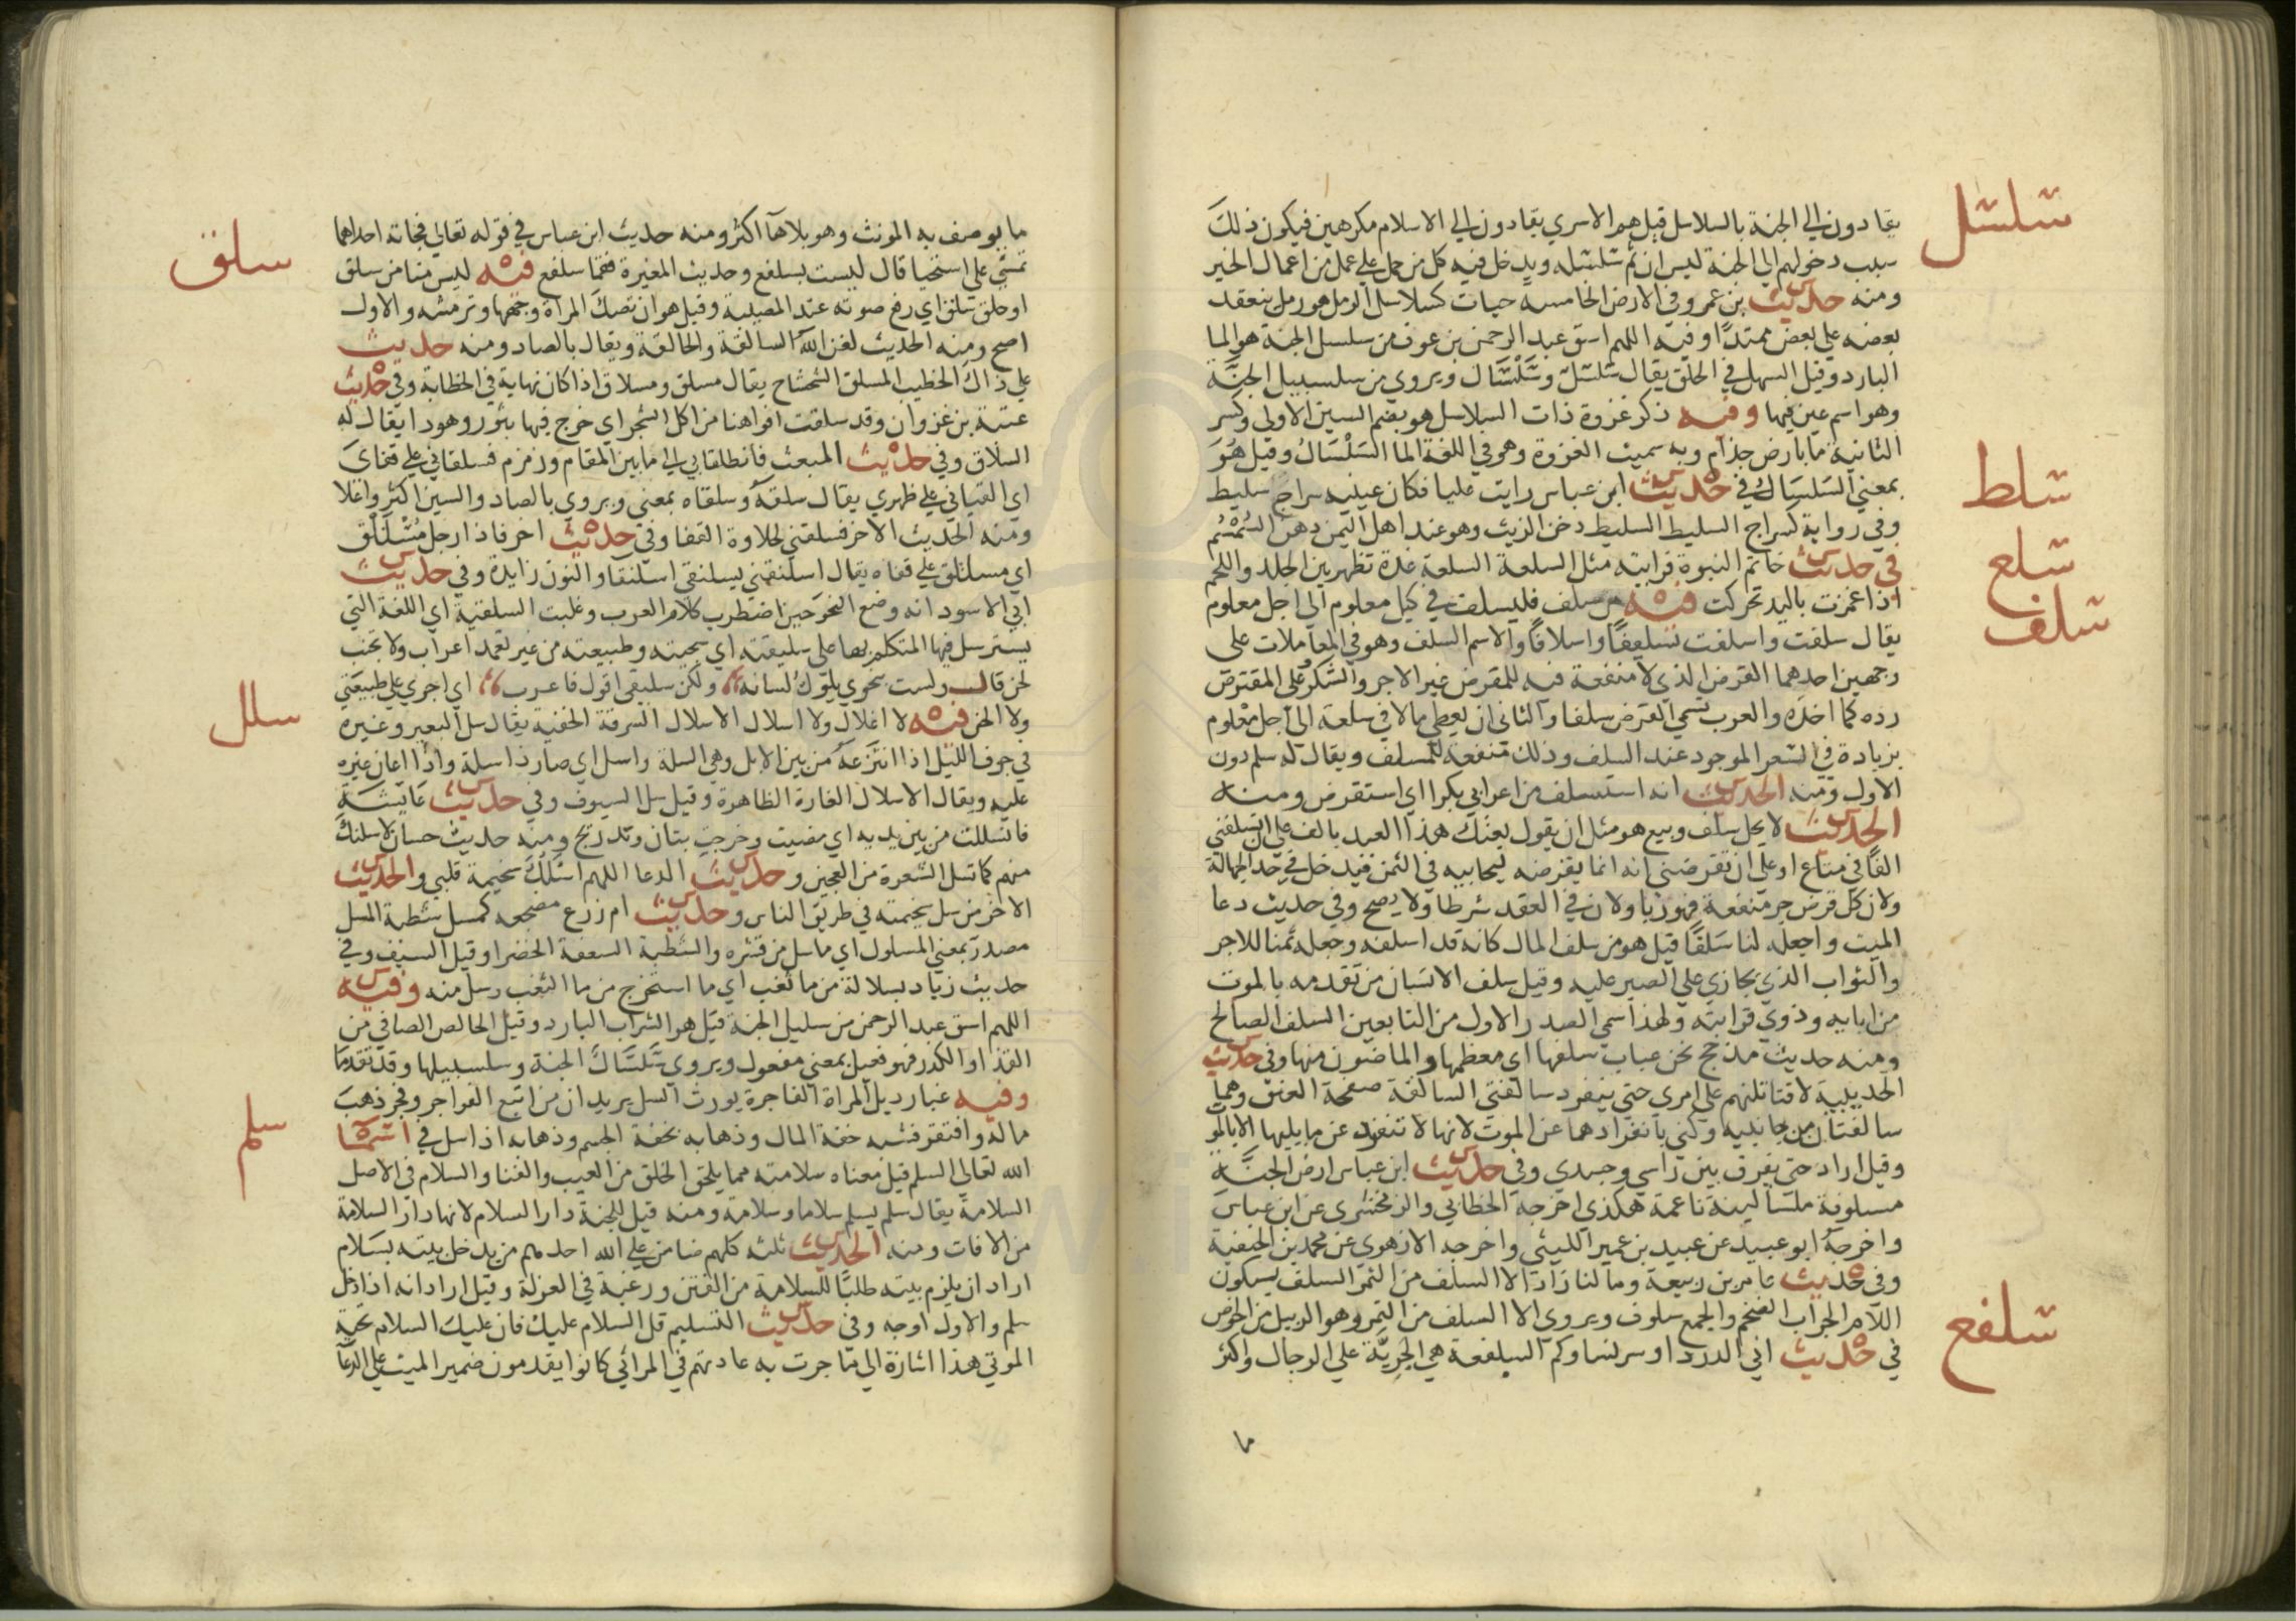 سلسل
يقادون الي الجنة بالسلاسل قيل هم الاسري يقادون الي الاسلام مكرهين فيكون ذلك
سبب دخولهم الي الجنة ليس ان ثم سلسله ويدخل فيه كل من حمل علي عمل من اعمال الخير
ومنه حديث بن عمرو في الارض الخامسة حيات كسلاسل الرمل هو رمل ينعقد
بعضه علي بعض ممتدا وفيه اللهم اسق عبد الرحمن بن عوف من سلسل الجنة هو الما
البارد وقيل السهل في الحلق يقال سلسل وسلسال ويروي من سلسبيل الجنة
وهو اسم عين فيها وفيه ذكر غزوة ذات السلاسل هو بضم السين الاولي وكسر
الثانية ما بارض جذام وبه سميت الغزوة وهو في اللغة الما السلسال وقيل هو
سلط
بمعني السلسال في حديث ابن عباس رايت عليا فكان عينيه سراجا سليط
وفي رواية كسراج السليط السليط دخن الزيت وهو عند اهل اليمن دهن السمسم
سلع
في حديث خاتم النبوة فرايته مثل السلعة السلعة غدة تظهر بين الجلد واللحم
سلف
اذا غمزت باليد تحركت فيه من سلف فليسلف في كيل معلوم الي اجل معلوم
يقال سلفت واسلفت تسليفا واسلافا والاسم السلف وهو في المعاملات علي
وجهين احدهما القرض الذي لا منفعة فيه للمقرض غير الاجر والشكر علي المقترض
رده كما اخذه والعرب تسمي القرض سلفا والثاني ان يعطي مالا في سلعة الي اجل معلوم
بزيادة في السعر الموجود عند السلف وذلك منفعة للمسلف ويقال له سلم دون
الاول ومنه الحديث انه استسلف من اعرابي بكرا اي استقرض ومنه
الحديث لا يحل سلف وبيع هو مثل ان يقول بعتك هذا العبد بالف علي ان تسلفني
الفا في متاع او علي ان تقرضني انه انما يقرضه ليحابيه في الثمن فيدخل في حد الجهالة
ولان كل قرض جر منفعة فهو ربا ولان في العقد شرطا ولا يصح وفي حديث دعا
الميت واجعله لنا سلفا قيل هو من سلف المال كانه قد اسلفه وجعله ثمنا للاجر
والثواب الذي يجازي علي الصبر عليه وقيل سلف الانسان من تقدمه بالموت
من ابايه وذوي قرابته ولهذا سمي الصدر الاول من التابعين السلف الصالح
ومنه حديث مذحج نحن عباب سلفها اي معظمها والماضون منها وفي حديث
الحديبية لاقتاتلنهم علي امري حتي ينفرد سالفتي السالفة صفحة العنق وهما
سالفتان من جانبيه وكني بانفرادهما عن الموت لانها لا تنفرد عن ما يليها الا بالمو
وقيل اراد حتي يفرق بين راسي وجسدي وفي حديث ابن عباس ارض الجنة
مسلوفة ملسا لينة ناعمة هكذي اخرجه الخطابي والزمخشري عن ابن عباس
واخرجه ابو عبيد عن عبيد بن عمير الليثي واخرجه الازهري عن محمد بن الحنفية
وفي حديث عامر بن ربيعة وما لنا زاد الا السلف من التمر السلف بسكون
اللام الجراب الضخم والجمع سلوف ويروي الا السلف من التمر وهو الزبيل من الخوص
سلفع
في حديث ابي الدردا وسر نساوكم السلفعة هي الجرية علي الرجال واكثر
ما
ما يوصف به المونث وهو بلا هآ اكثر ومنه حديث ابن عباس في قوله تعالي فجاته احداهما
سلق
تمشي علي استحيا قال ليست بسلفع وحديث المغيرة فقما سلفع فيه ليس منا من سلق
او حلق سلق اي رفع صوته عند المصيبة وقيل هو ان تصك المراة وجهها وترمشه والاول
اصح ومنه الحديث لعن الله السالقة والحالقة ويقال بالصاد ومنه حديث
علي ذاك الخطيب المسلق الشحشاح يقال مسلق ومسلاق اذا كان نهاية في الخطابة وفي حديث
عتبة بن غزوان وقد سلقت افواهنا من اكل الشجر اي خرج فيها بثور وهو دا يقال له
السلاق وفي حديث المبعث فانطلقا بي الي ما بين المقام وزمزم فسلقاني علي قفاي
اي القياني علي ظهري يقال سلقه وسلقاه بمعني ويروي بالصاد والسين اكثر واعلا
ومنه الحديث الاخر فسلقني لحلاوة القفا وفي حديث اخر فاذا رجل مسلنق
اي مسلنق علي قفاه يقال اسلنقني يسلنقي اسلنقا والنون زايدة وفي حديث
ابي الاسود انه وضع النحو حين اضطرب كلام العرب وغلبت السلقية اي اللغة التي
يسترسل فيها المتكلم بها علي سليقته اي سجيته وطبيعته من غير تعمد اعراب ولا تجنب
لحن قال ولست بنحوي يلوك لسانه ولكن سليقي اقول فاعرب اي اجري علي طبيعتي
سلل
ولا الحن فيه لا اغلال ولا اسلال الاسلال السرقة الخفية يقال سل البعير وغيره
في جوف الليل اذا انتزعه من بين الابل وهي السلة واسل اي صار ذا سلة واذا اعان غيره
عليه ويقال الاسلال الغارة الظاهرة وقيل سل السيوف وفي حديث عايشة
فانسللت من بين يديه اي مضيت وخرجت بتان وتدريج ومنه حديث حسان لاسلنك
منهم كما تسل الشعرة من العجين وحديث الدعا اللهم اسلل سخيمة قلبي والحديث
الاخر من سل سخيمته في طريق الناس وحديث ام زرع مضجعه كمسل شطبة المسل
مصدر بمعني المسلول اي ما سل من قشره والشطبة السعفة الخضرا وقيل السيف وفي
حديث زياد بسلالة من ما ثغب اي ما استخرج من ما الثغب وسل منه وفيه
اللهم اسق عبد الرحمن من سليل الجنة قيل هو الشراب البارد وقيل الخالص الصافي من
القذا والكدر فهو فعيل بمعني مفعول ويروي سلسال الجنة وسلسبيلها وقد تقدما
وفيه غبار ذيل المراة الفاجرة يورث السل يريد ان من اتبع الفواجر وفجر ذهب
ماله وافتقر فشبه خفة المال وذهابه بخفة الجسم وذهابه اذا سل في اسما
سلم
الله تعالي السلم قيل معناه سلامته مما يلحق الخلق من العيب والفنا والسلام في الاصل
السلامة يقال سلم يسلم سلاما وسلامة ومنه قيل للجنة دار السلام لانها دار السلامة
من الافات ومنه الحديث ثلثه كلهم ضامن علي الله احدهم من يدخل بيته بسلام
اراد ان يلزم بيته طلبا للسلامة من الفتن ورغبة في العزلة وقيل اراد انه اذا دخل
سلم والاول اوجه وفي حديث التسليم قل السلام عليك فان عليك السلام تحية
الموتي هذا اشارة الي ما جرت به عادتهم في المراثي كانوا يقدمون ضمير الميت علي الدعا